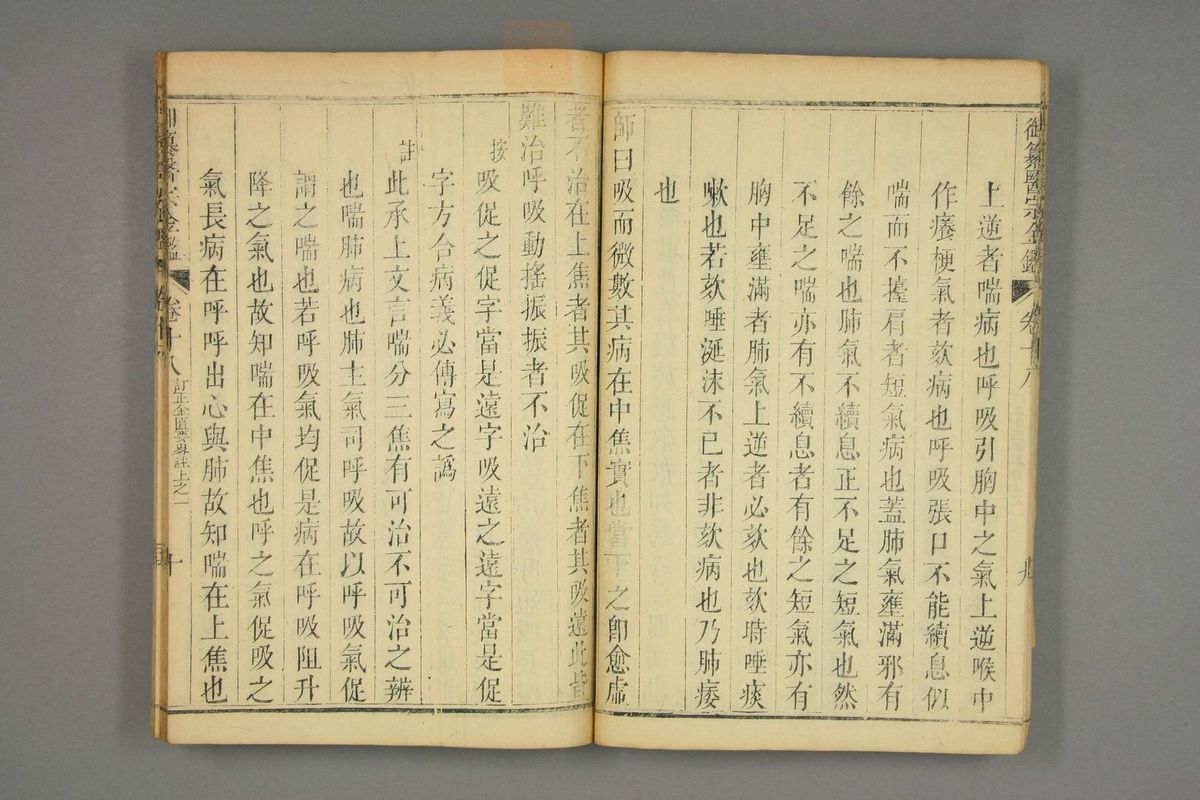 御纂醫宗金鑑 卷十八 九
上逆者喘病也呼吸引胸中之氣上逆喉中
作癢梗氣者欬病也呼吸張口不能續息似
喘而不擡肩者短氣病也蓋肺氣壅滿邪有
餘之喘也肺氣不續息正不足之短氣也然
不足之喘亦有不續息者有餘之短氣亦有
胸中壅滿者肺氣上逆者必欬也欬時唾痰
嗽也若欬唾涎沫不已者非欬病也乃肺痿
也
師曰吸而微數其病在中焦實也當下之卽愈虛
者不治在上焦者其吸促在下焦者其吸遠此皆
難治呼吸動搖振振者不治
按吸促之促字當是遠字吸遠之遠字當是促
字方合病義必傳寫之譌
註此承上文言喘分三焦有可治不可治之辨
也喘肺病也肺主氣司呼吸故以呼吸氣促
謂之喘也若呼吸氣均促是病在呼吸阻升
降之氣也故知喘在中焦也呼之氣促吸之
氣長病在呼呼出心與肺故知喘在上焦也
纂醫宗金鑑 卷十八 訂正金匱要畧註上之一 十